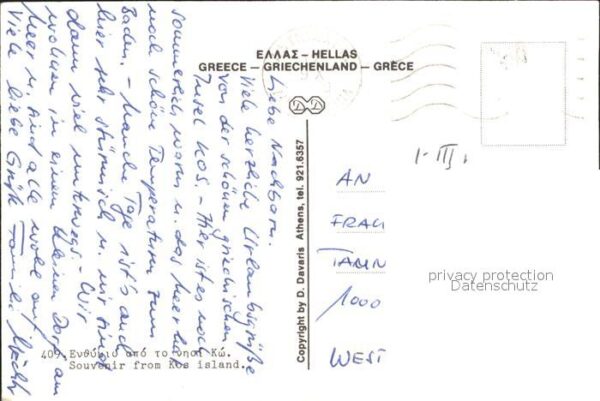 ΕΛΛΑΣ – HELLAS
GREECE – GRIECHENLAND – GRÈCE
Liebe Nachbarn.
Viele herzliche Urlaubsgrüße
von der schönen griechischen
Insel KOS. - Hier ist es noch
sommerlich warm u. das Meer hat
noch schöne Temperaturen zum
Baden. - Manche Tage ist's auch
hier sehr stürmisch u. wir sind
dann viel unterwegs. - Wir
wohnen in einem kleinen Dorf am
Meer u. sind alle wohl auf.
Viele liebe Grüße Familie
Copyright by D. Davaris Athens, tel. 921.6357
1-III.
AN
FRAU
TAMN
1000
WEST
privacy protection
Datenschutz
409.Ενθύμιο από το νησί Κω.
Souvenir from Kos island.